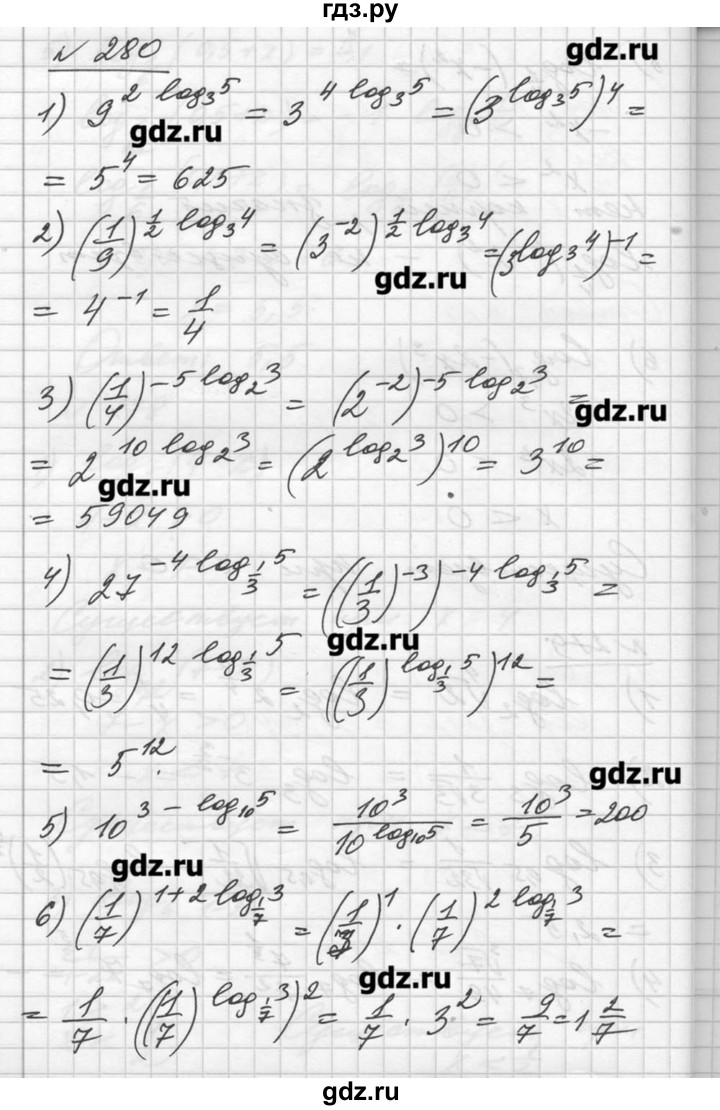 гдз.ру
№ 280
gdz.ru
1) 9^{2 log_3 5} = 3^{4 log_3 5} = (3^{log_3 5})^4 =
gdz.ru
= 5^4 = 625
2) (1/9)^{1/2 log_3 4} = (3^{-2})^{1/2 log_3 4} = (3^{log_3 4})^{-1} =
gdz.ru
= 4^{-1} = 1/4
3) (1/4)^{-5 log_2 3} = (2^{-2})^{-5 log_2 3} =
gdz.ru
= 2^{10 log_2 3} = (2^{log_2 3})^{10} = 3^{10} =
gdz.ru
= 59049
4) 27^{-4 log_{1/3} 5} = ((1/3)^{-3})^{-4 log_{1/3} 5} =
gdz.ru
= (1/3)^{12 log_{1/3} 5} = ((1/3)^{log_{1/3} 5})^{12} =
= 5^{12}.
gdz.ru
5) 10^{3 - log_{10} 5} = 10^3/10^{log_{10} 5} = 10^3/5 = 200
gdz.ru
6) (1/7)^{1+2 log_{1/7} 3} = (1/7)^1 · (1/7)^{2 log_{1/7} 3} =
gdz.ru
= 1/7 · ((1/7)^{log_{1/7} 3})^2 = 1/7 · 3^2 = 9/7 = 1 2/7
gdz.ru